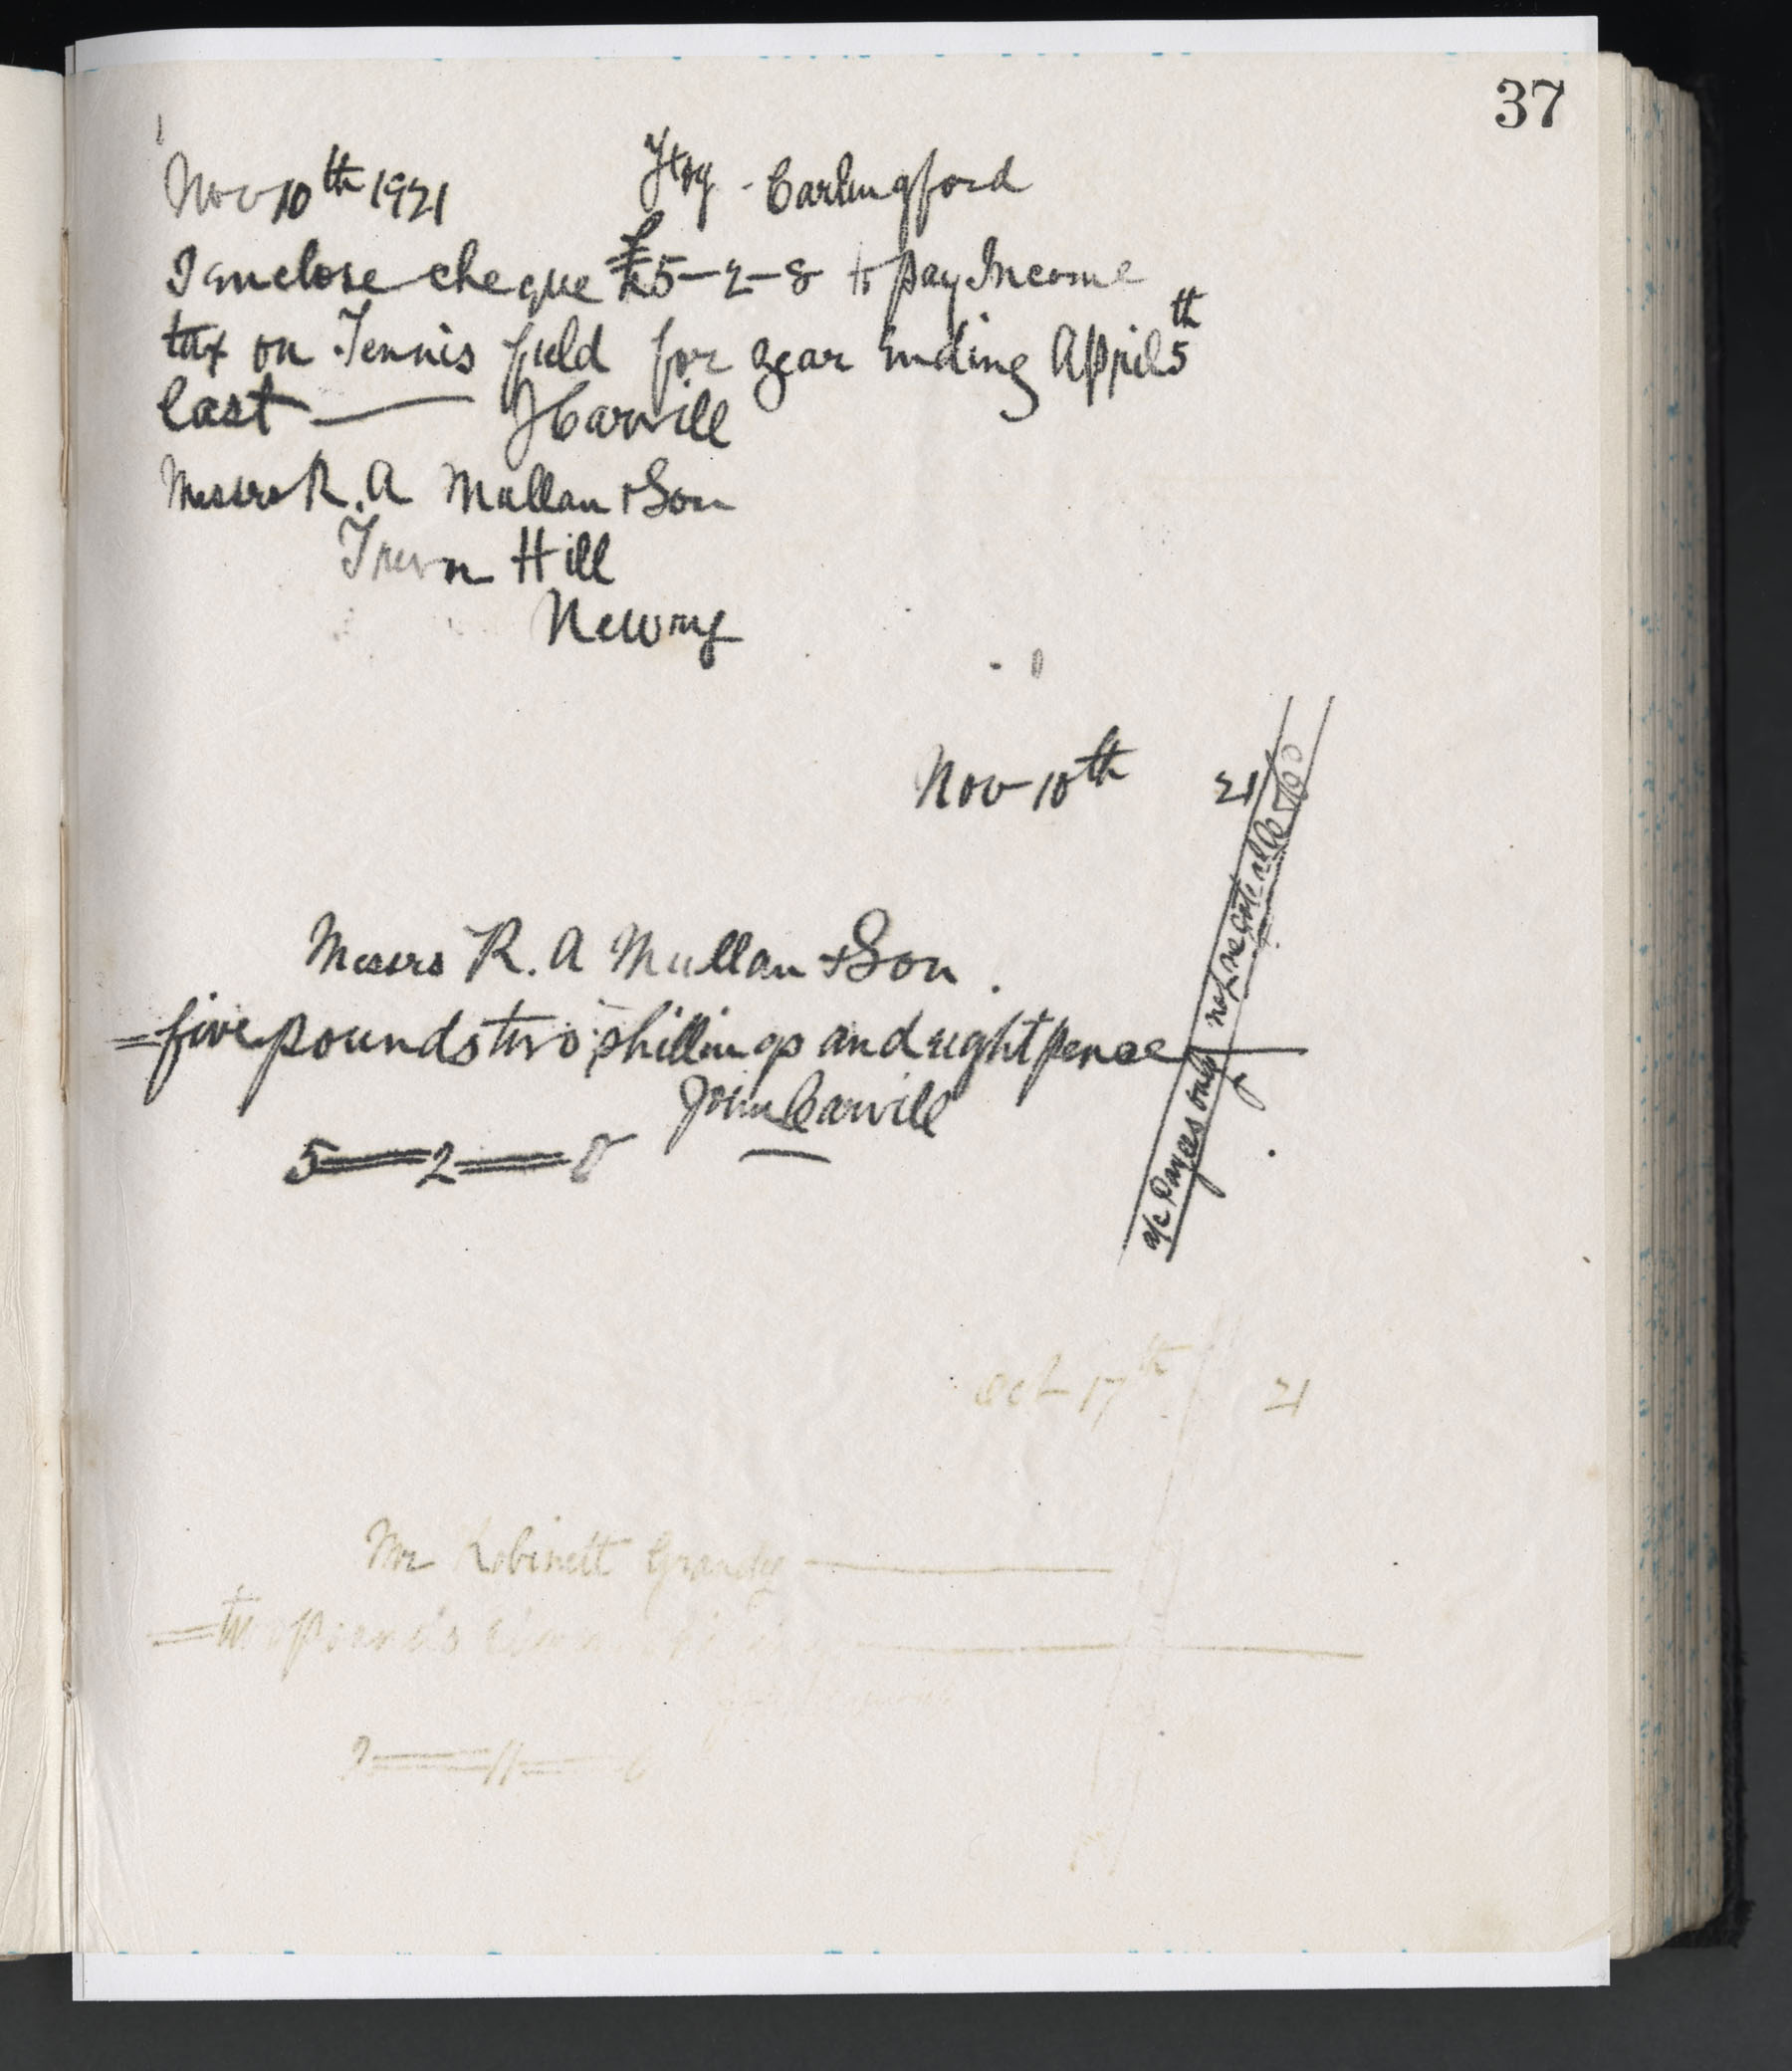 37
Nov 10th 1921 Carlingford
I enclose cheque £5-2-8 to pay Income
tax on Tennis field for year ending April 5th
last — J Carvill
Messrs R. A Mullan + Son
Trevor Hill
Newry
Nov 10th 21
a/c Payees only not negotiable & Co
Messrs R. A Mullan + Son.
= five pounds two shillings and eight pence
John Carvill
5 = 2 = 8
Oct 17th 21
Mr Robinett Grandy
= two pounds eleven
2 = 11 = 0